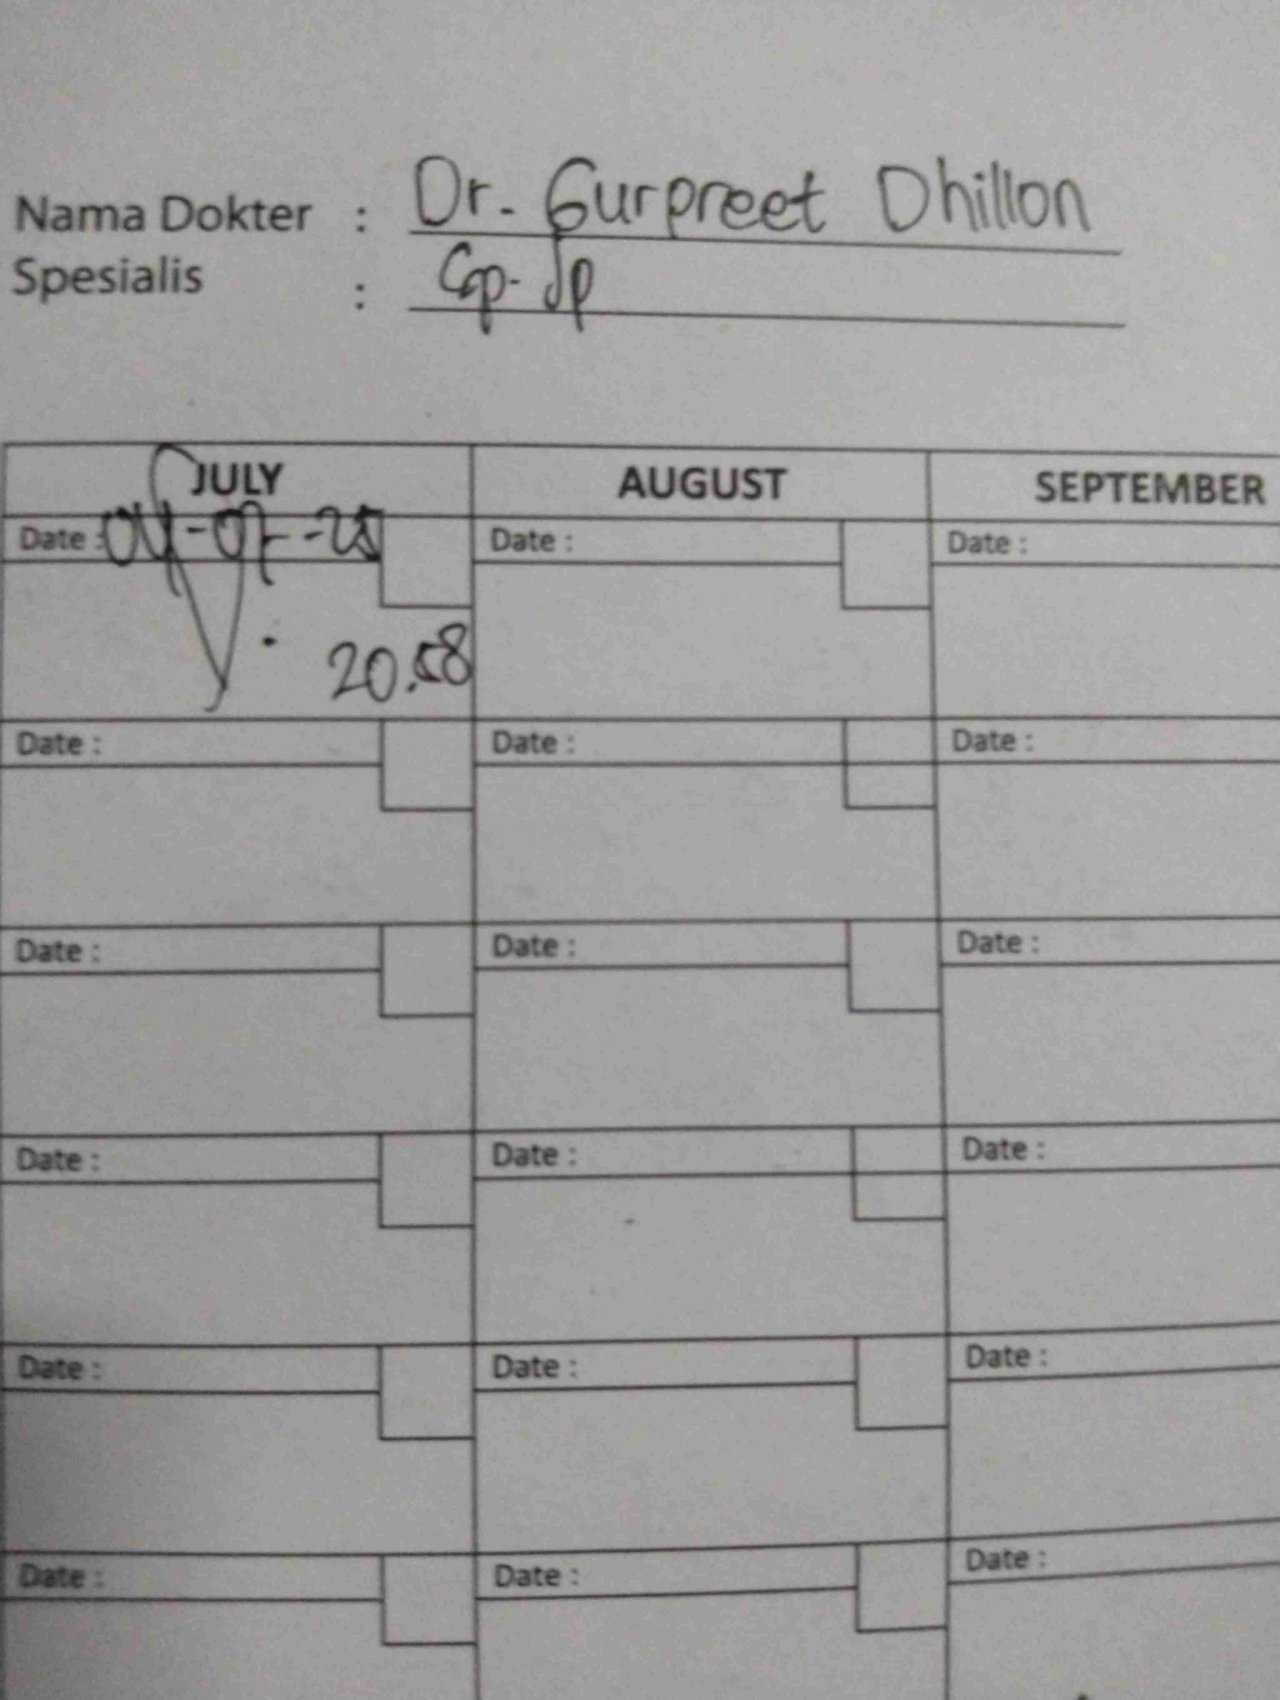 Nama Dokter : Dr. Gurpreet Dhillon
Spesialis : Sp. Jp
JULY AUGUST SEPTEMBER
Date : 04-07-25 Date : Date :
20.58
Date : Date : Date :
Date : Date : Date :
Date : Date : Date :
Date : Date : Date :
Date : Date : Date :